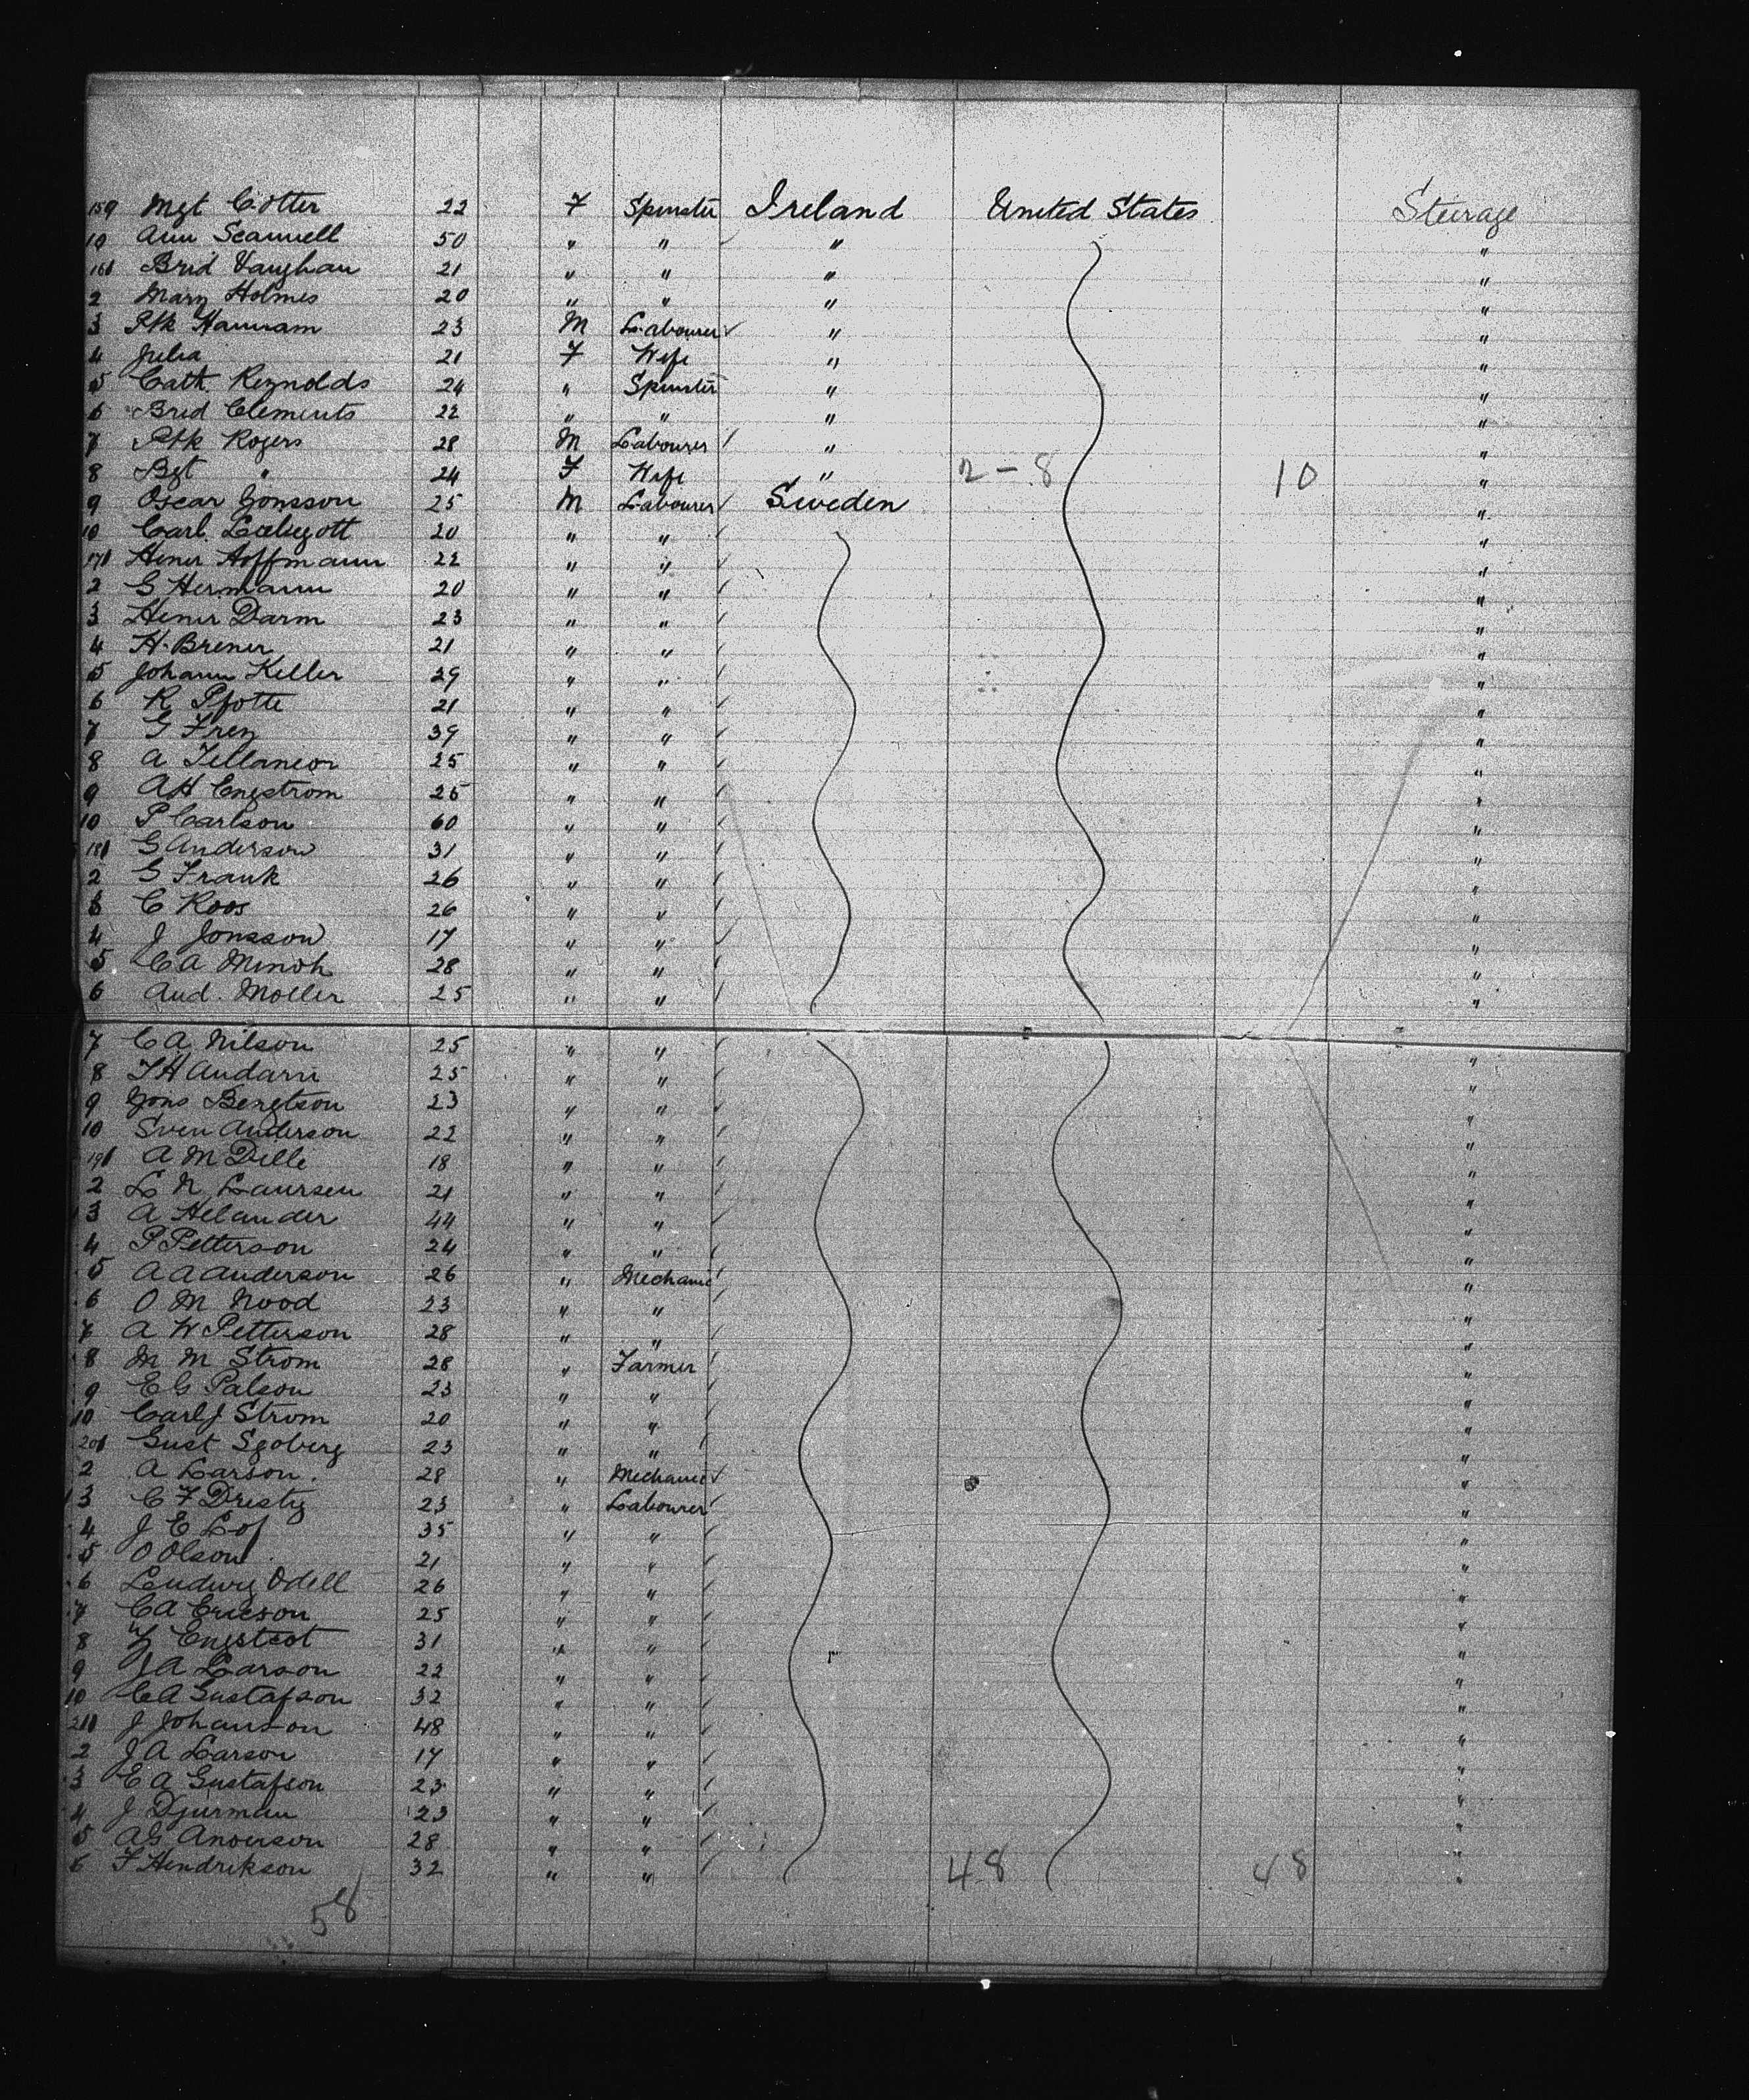 159 Mgt Cotter 22 F Spinster Ireland United States Steerage
10 Ann Scannell 50 " " " "
161 Brid Vaughan 21 " " " "
2 Mary Holmes 20 " " " "
3 Ptk Hannam 23 M Labourer " "
4 Julia 21 F Wife " "
5 Cath Reynolds 24 " Spinster " "
6 Brid Clements 22 " " " "
7 Ptk Rogers 28 M Labourer " "
8 Bgt " 24 F Wife " 2-8 10 "
9 Oscar Jonsson 25 M Labourer Sweden "
10 Carl 20 " " "
171 Henir Hoffmann 22 " " "
2 G Hermann 20 " " "
3 Henir Darm 23 " " "
4 H. Brener 21 " " "
5 Johann Keller 29 " " "
6 R Pfotte 21 " " "
7 G Frey 39 " " "
8 A 25 " " "
9 AH Engstrom 25 " " "
10 P Carlson 60 " " "
181 G Anderson 31 " " "
2 G Frank 26 " " "
3 C Roos 26 " " "
4 J Jonsson 17 " " "
5 C A Minoh 28 " " "
6 Aud. Moller 25 " " "
7 C A Nilson 25 " " "
8 25 " " "
9 Jons Bengtson 23 " " "
10 Sven Anderson 22 " " "
191 A M Delle 18 " " "
2 L N Laursen 21 " " "
3 A Helander 44 " " "
4 P Petterson 24 " " "
5 A A Anderson 26 " Mechanic "
6 O M Nood 23 " " "
7 A W Petterson 28 " " "
8 M M Strom 28 " Farmer "
9 E G Palson 23 " " "
10 Carl J Strom 20 " " "
201 Gust Sgoberg 23 " " "
2 A Larson. 28 " Mechanic "
3 C F 23 " Labourer "
4 J E Lof 35 " " "
5 O Olson 21 " " "
6 Ludwig Odell 26 " " "
7 C A Ericson 25 " " "
8 31 " " "
9 J A Larson 22 " " "
10 C A Gustafson 32 " " "
211 J Johanson 48 " " "
2 J A Larson 17 " " "
3 E A Gustafson 23 " " "
4 J Djurman 23 " " "
5 AG Anderson 28 " " "
6 F Hendrikson 32 " " 48 48 "
58